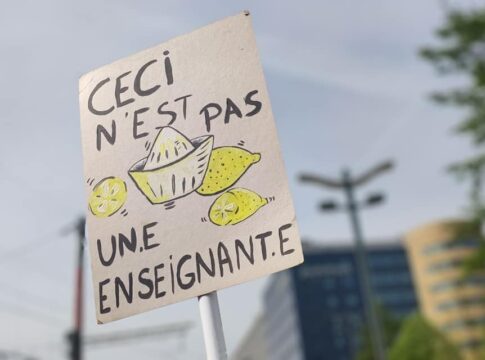 CECi
N'EST PAS
UN.E
ENSEiGNANT.E